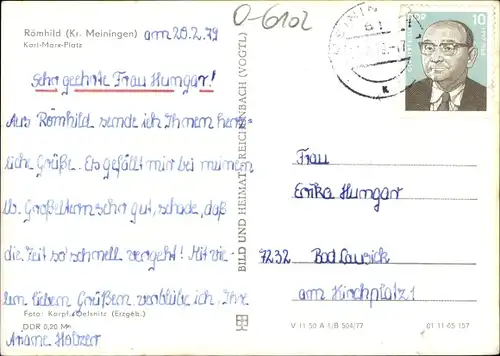 Römhild (Kr. Meiningen) am 20.2.79
Karl-Marx-Platz
O-6102
Sehr geehrte Frau Hungar!
Aus Römhild sende ich Ihnen herz-
liche Grüße. Es gefällt mir bei meinen
lb. Großeltern sehr gut, schade, daß
die Zeit so schnell vergeht! Mit vie-
len lieben Grüßen verbleibe ich, Ihre
Foto: Karpf, Oelsnitz (Erzgeb.)
DDR 0,20 M
Ariane Holzer
BILD UND HEIMAT REICHENBACH (VOGTL)
61
K
DDR
10
Frau
Erika Hungar
7232 Bad Lausick
am Kirchplatz 1
V 11 50 A 1/B 504/77 01 11 05 157